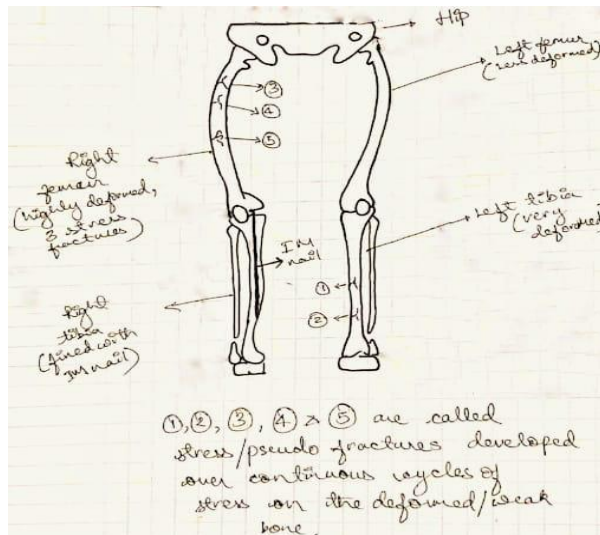 Hip
Left femur
(less deformed)
③
④
⑤
Right
femur
(highly deformed,
3 stress
fractures)
Left tibia
(very
deformed)
IM
nail
①
②
Right
tibia
(fixed with
IM nail)
①, ②, ③, ④ & ⑤ are called
stress/pseudo fractures developed
over continuous cycles of
stress on the deformed/weak
bone.